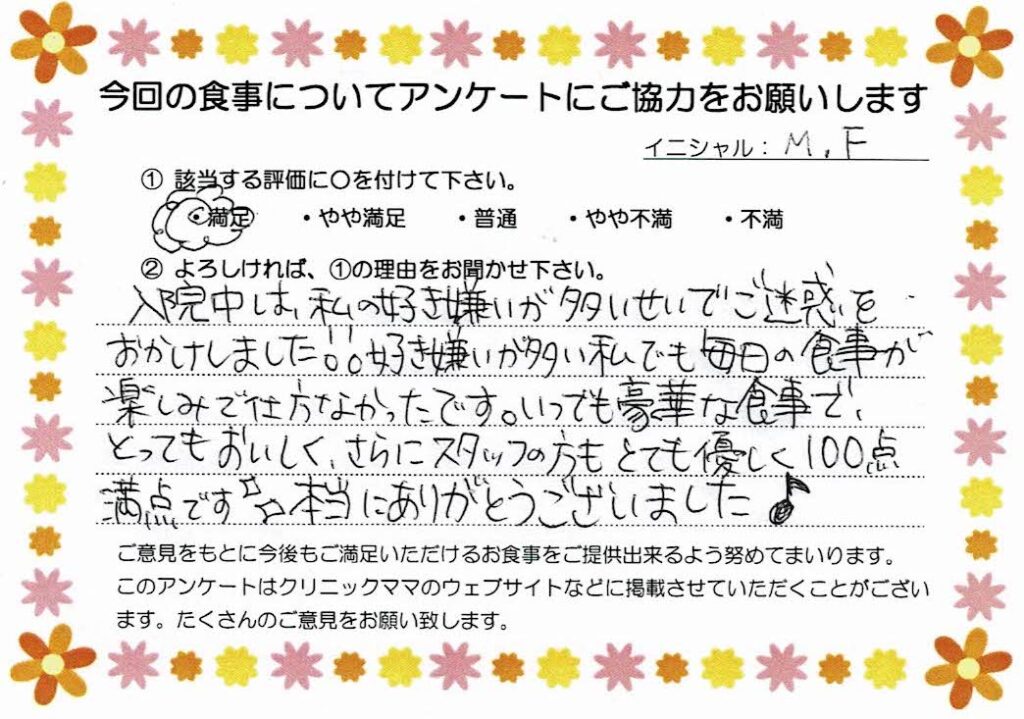 今回の食事についてアンケートにご協力をお願いします
イニシャル：M.F
① 該当する評価に〇を付けて下さい。
・満足 ・やや満足 ・普通 ・やや不満 ・不満
② よろしければ、①の理由をお聞かせ下さい。
入院中は、私の好き嫌いが多いせいでご迷惑を
おかけしました!!。好き嫌いが多い私でも毎日の食事が
楽しみで仕方なかったです。いつでも豪華な食事で、
とってもおいしく、さらにスタッフの方もとても優しく100点
満点です✨本当にありがとうございました♪
ご意見をもとに今後もご満足いただけるお食事をご提供出来るよう努めてまいります。
このアンケートはクリニックママのウェブサイトなどに掲載させていただくことがござい
ます。たくさんのご意見をお願い致します。